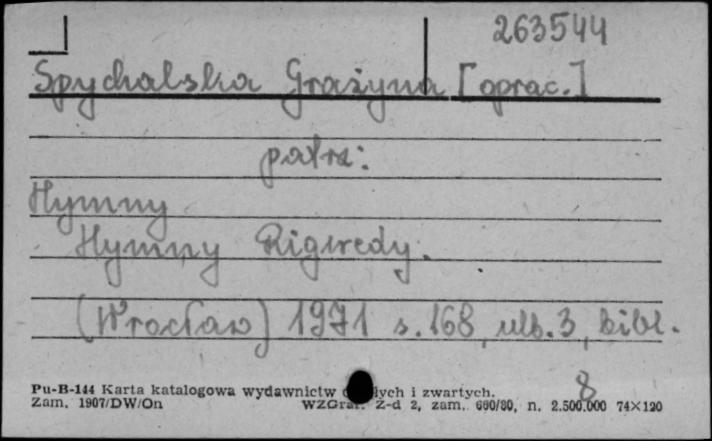 263544
Spychalska Grażyna [oprac.]
patrz:
Hymny
Hymny Rigwedy.
(Wrocław) 1971 s. 168, ulb. 3, bibl.
8
Pu-B-144 Karta katalogowa wydawnictw ciągłych i zwartych.
Zam. 1907/DW/On WZGraf. Z-d 2, zam. 690/80, n. 2.500.000 74×120